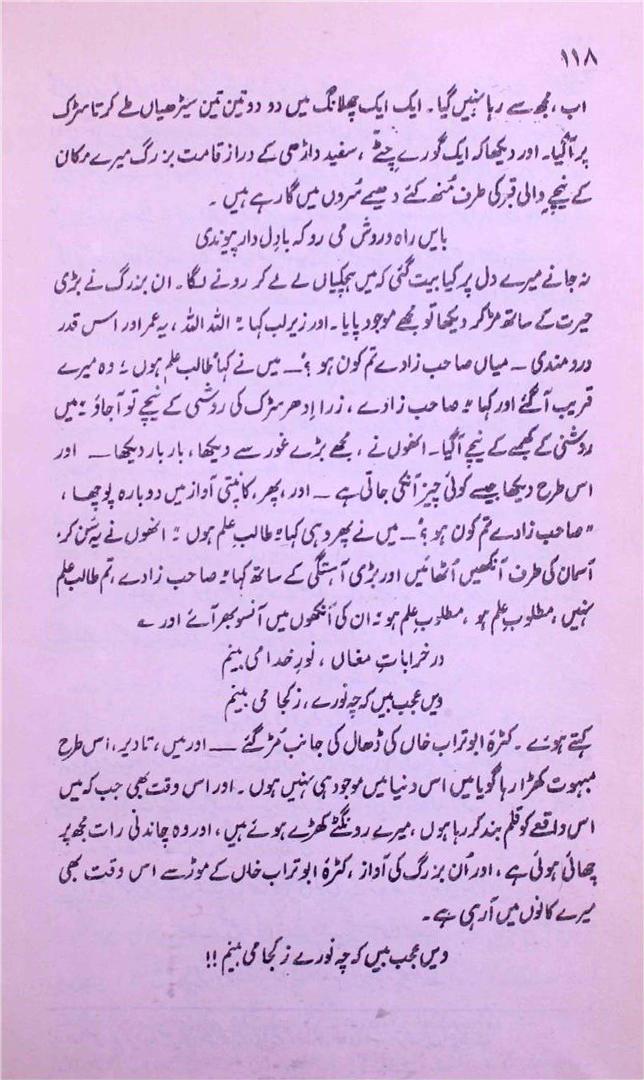 ۱۱۸
اب، مجھ سے رہا نہیں گیا۔ ایک ایک چھلانگ میں دو دو تین تین سیڑھیاں طے کرتا سڑک
پر آگیا۔ اور دیکھا کہ ایک گورے چٹے، سفید داڑھی کے دراز قامت بزرگ میرے مکان
کے نیچے والی قبر کی طرف مُنھ کئے دھیمے سُروں میں گا رہے ہیں۔
بایں راہ و روش می رو کہ با دِل دار پیوندی
نہ جانے میرے دل پر کیا بیت گئی کہ میں ہچکیاں لے لے کر رونے لگا۔ ان بزرگ نے بڑی
حیرت کے ساتھ مڑ کر دیکھا تو مجھے موجود پایا۔ اور زیرِ لب کہا "اللہ اللہ، یہ عمر اور اس قدر
درد مندی ــ میاں صاحب زادے تم کون ہو؟" ــ میں نے کہا "طالب علم ہوں" وہ میرے
قریب آگئے اور کہا "صاحب زادے، زرا اِدھر سڑک کی روشنی کے نیچے تو آجاؤ" میں
روشنی کے کھمبے کے نیچے آگیا۔ انھوں نے، مجھے بڑے غور سے دیکھا، بار بار دیکھا ــ اور
اس طرح دیکھا جیسے کوئی چیز آنکی جاتی ہے ــ اور، پھر، کانپتی آواز میں دوبارہ پوچھا،
"صاحب زادے تم کون ہو؟" ــ میں نے پھر وہی کہا "طالبِ علم ہوں" انھوں نے یہ سُن کر،
آسمان کی طرف آنکھیں اُٹھائیں اور بڑی آہستگی کے ساتھ کہا "صاحب زادے، تم طالبِ علم
نہیں، مطلوبِ علم ہو، مطلوبِ علم ہو" ان کی آنکھوں میں آنسو بھر آئے اور ؎
در خراباتِ مغاں، نورِ خدا می بینم
ویں عجب بیں کہ چہ نورے، ز کجا می بینم
کہتے ہوئے۔ کٹرۂ ابو تراب خاں کی ڈھال کی جانب مُڑ گئے ــ اور میں، تا دیر، اس طرح
مبہوت کھڑا رہا گویا میں اس دنیا میں موجود ہی نہیں ہوں۔ اور اس وقت بھی جب کہ میں
اس واقعے کو قلم بند کر رہا ہوں، میرے رونگٹے کھڑے ہوئے ہیں، اور وہ چاندنی رات مجھ پر
چھائی ہوئی ہے، اور اُن بزرگ کی آواز، کٹرۂ ابو تراب خاں کے موڑ سے اس وقت بھی
میرے کانوں میں آ رہی ہے۔
ویں عجب بیں کہ چہ نورے ز کجا می بینم !!